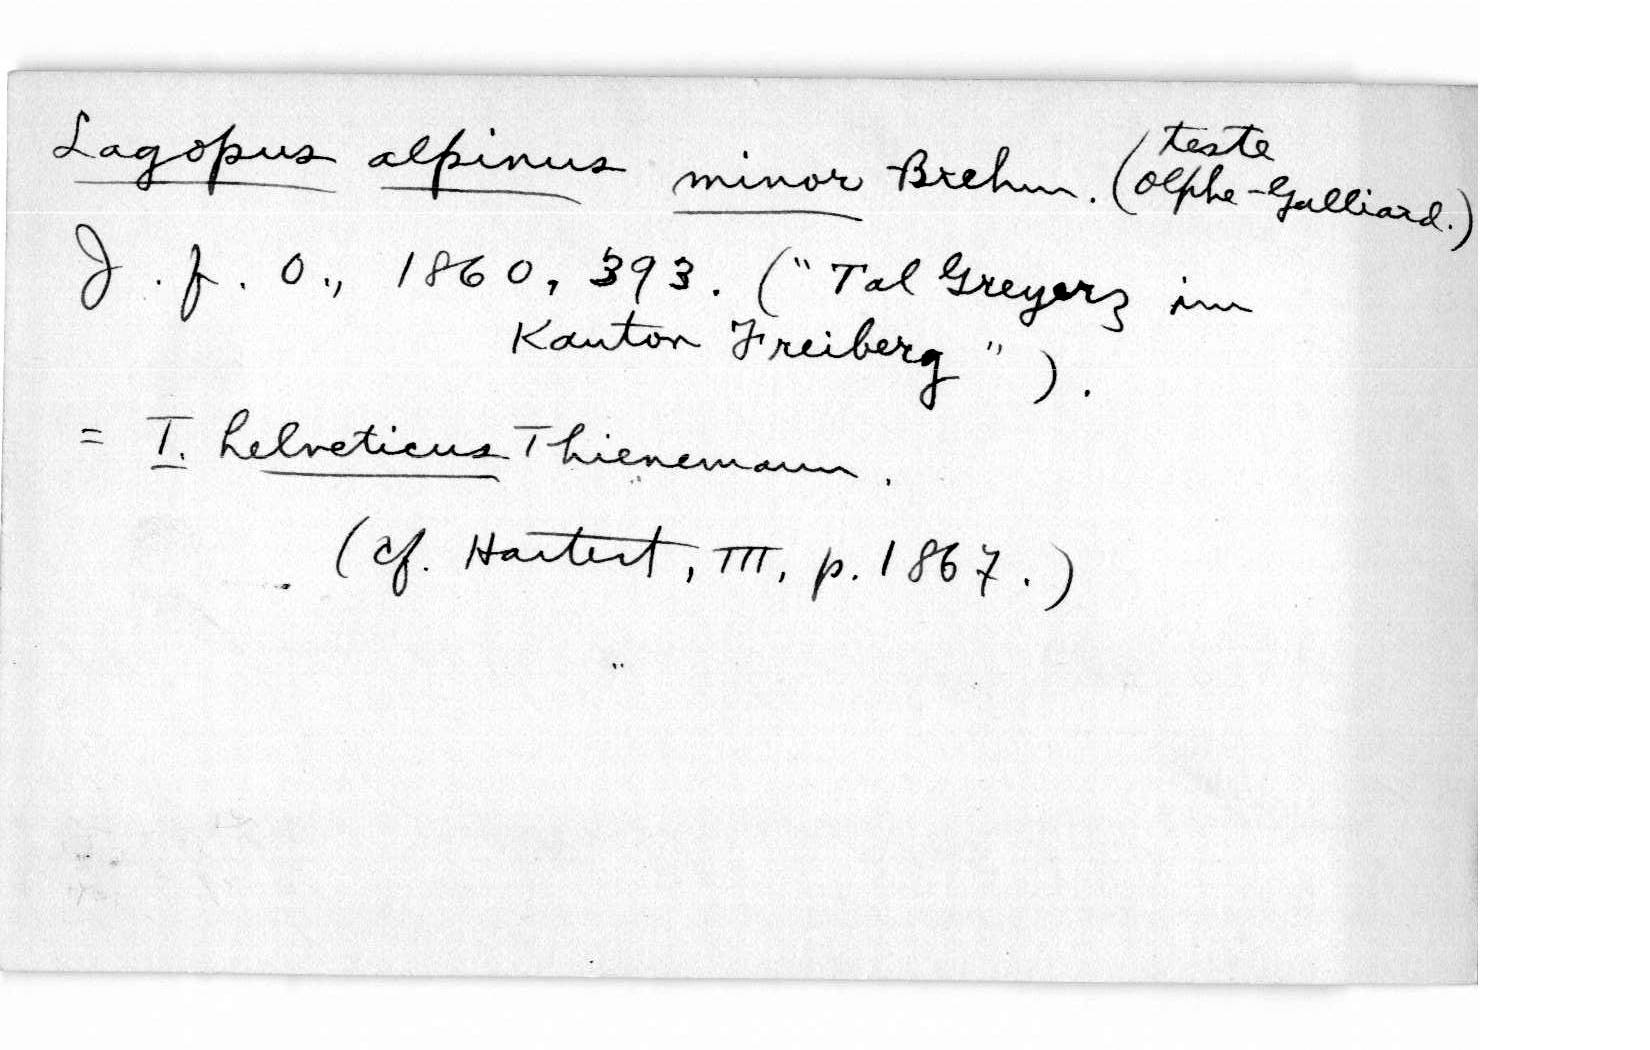 Lagopus alpinus minor Brehm. (teste Olphe-Galliard.)
J. f. O., 1860, 393. ("Tal Greyerz im
Kanton Freiberg").
= T. helveticus Thienemann.
(cf. Hartert, III, p. 1867.)